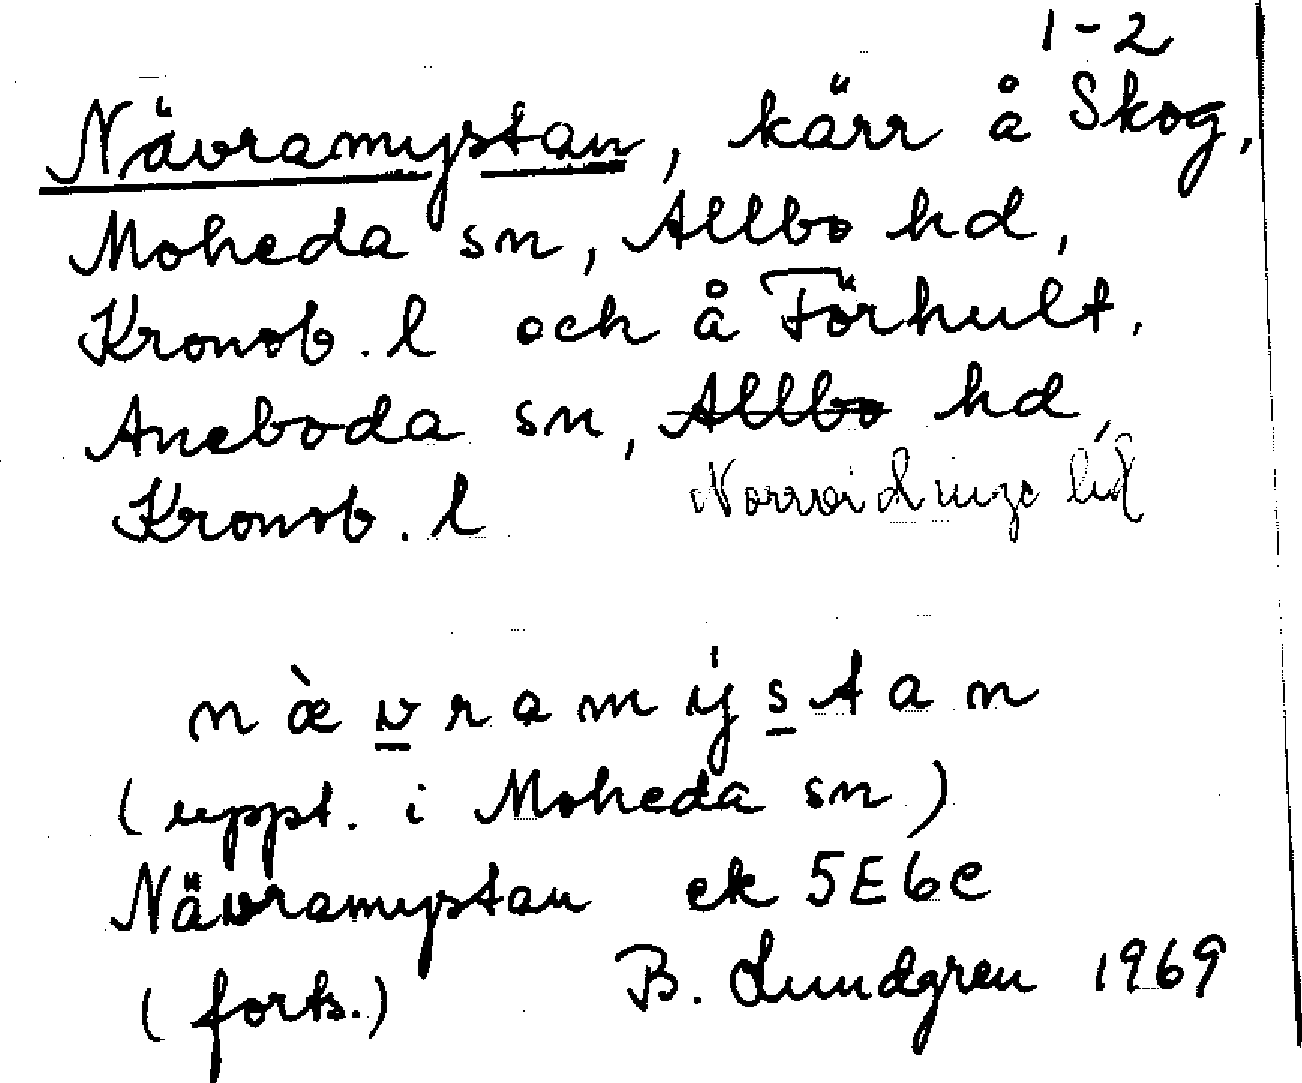 1-2
Nävramystan, kärr å Skog,
Moheda sn, Allbo hd,
Kronob. l och å Förhult,
Aneboda sn, Allbo hd,
Kronob. l Norrvidinge hd
nævramýstan
(uppt. i Moheda sn)
Nävramystan ek 5E6e
(forts.) B. Lundgren 1969